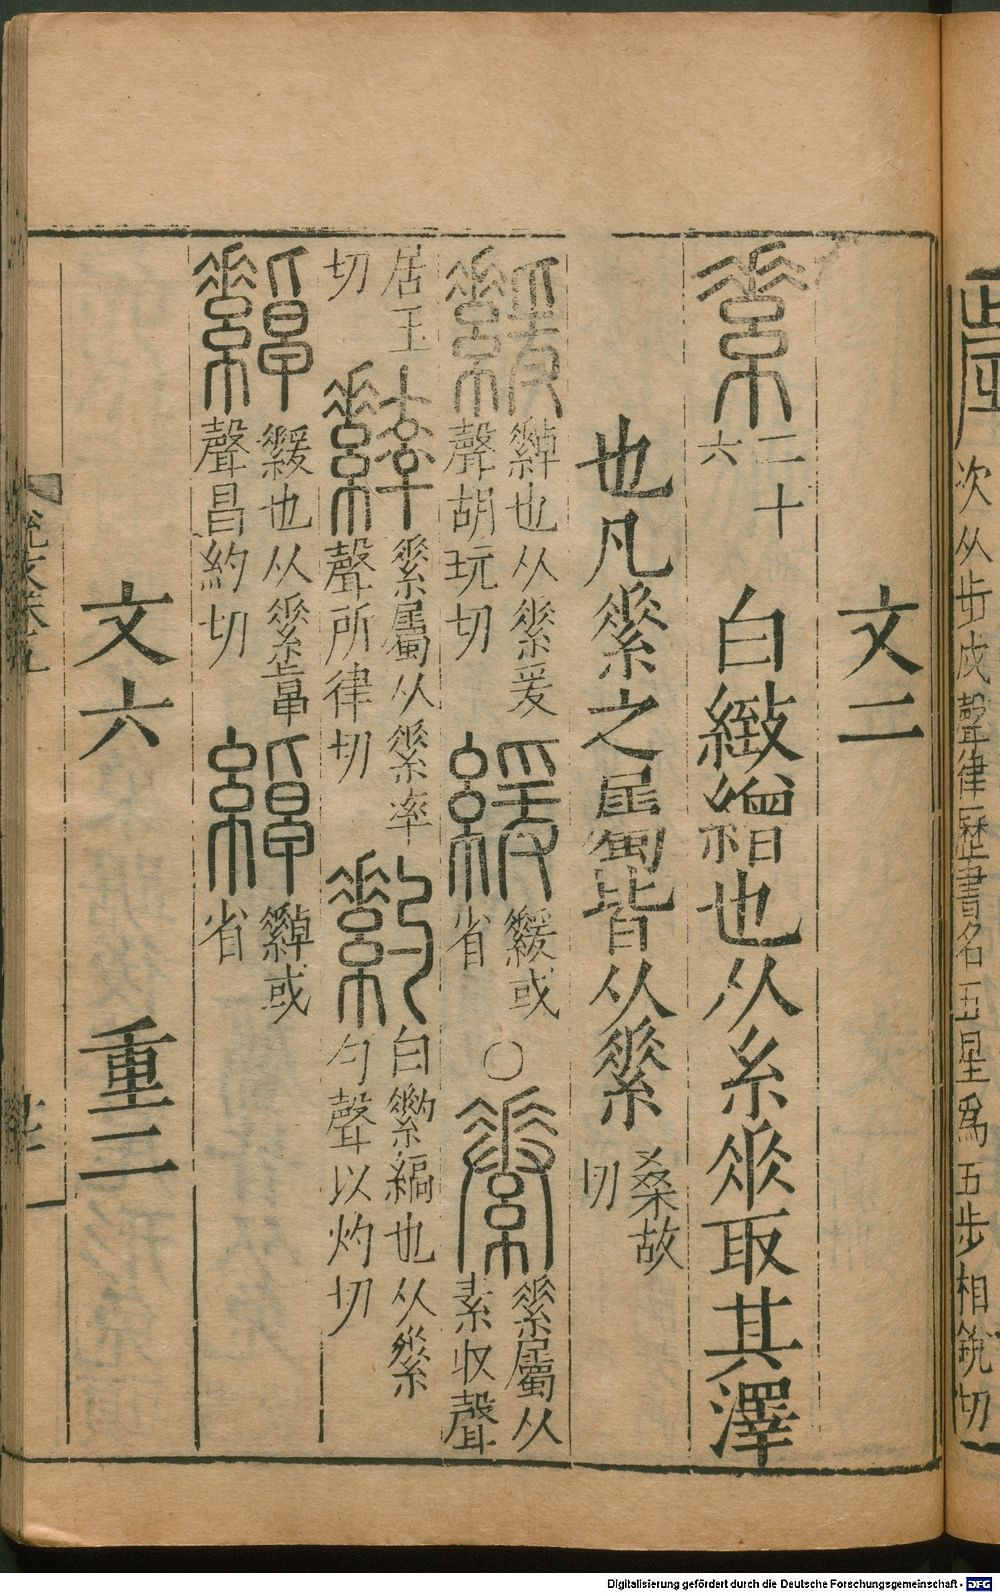 歲 次从步戌聲律歷書名五星爲五步相銳切
文二
素 二十六 白緻繒也从糸𠂹取其澤
也凡素之屬皆从素 桑故切
𦆕 𦇚也从素爰聲胡玩切 緩 𦆕或省 ○ 𦁐 素屬从素収聲
居玉切 𦅇 素屬从素率聲所律切 䋤 白䋤縞也从素勺聲以灼切
𦇚 𦆕也从素卓聲昌約切 綽 𦇚或省
文六 重二
說文卷
Digitalisierung gefördert durch die Deutsche Forschungsgemeinschaft - DFG